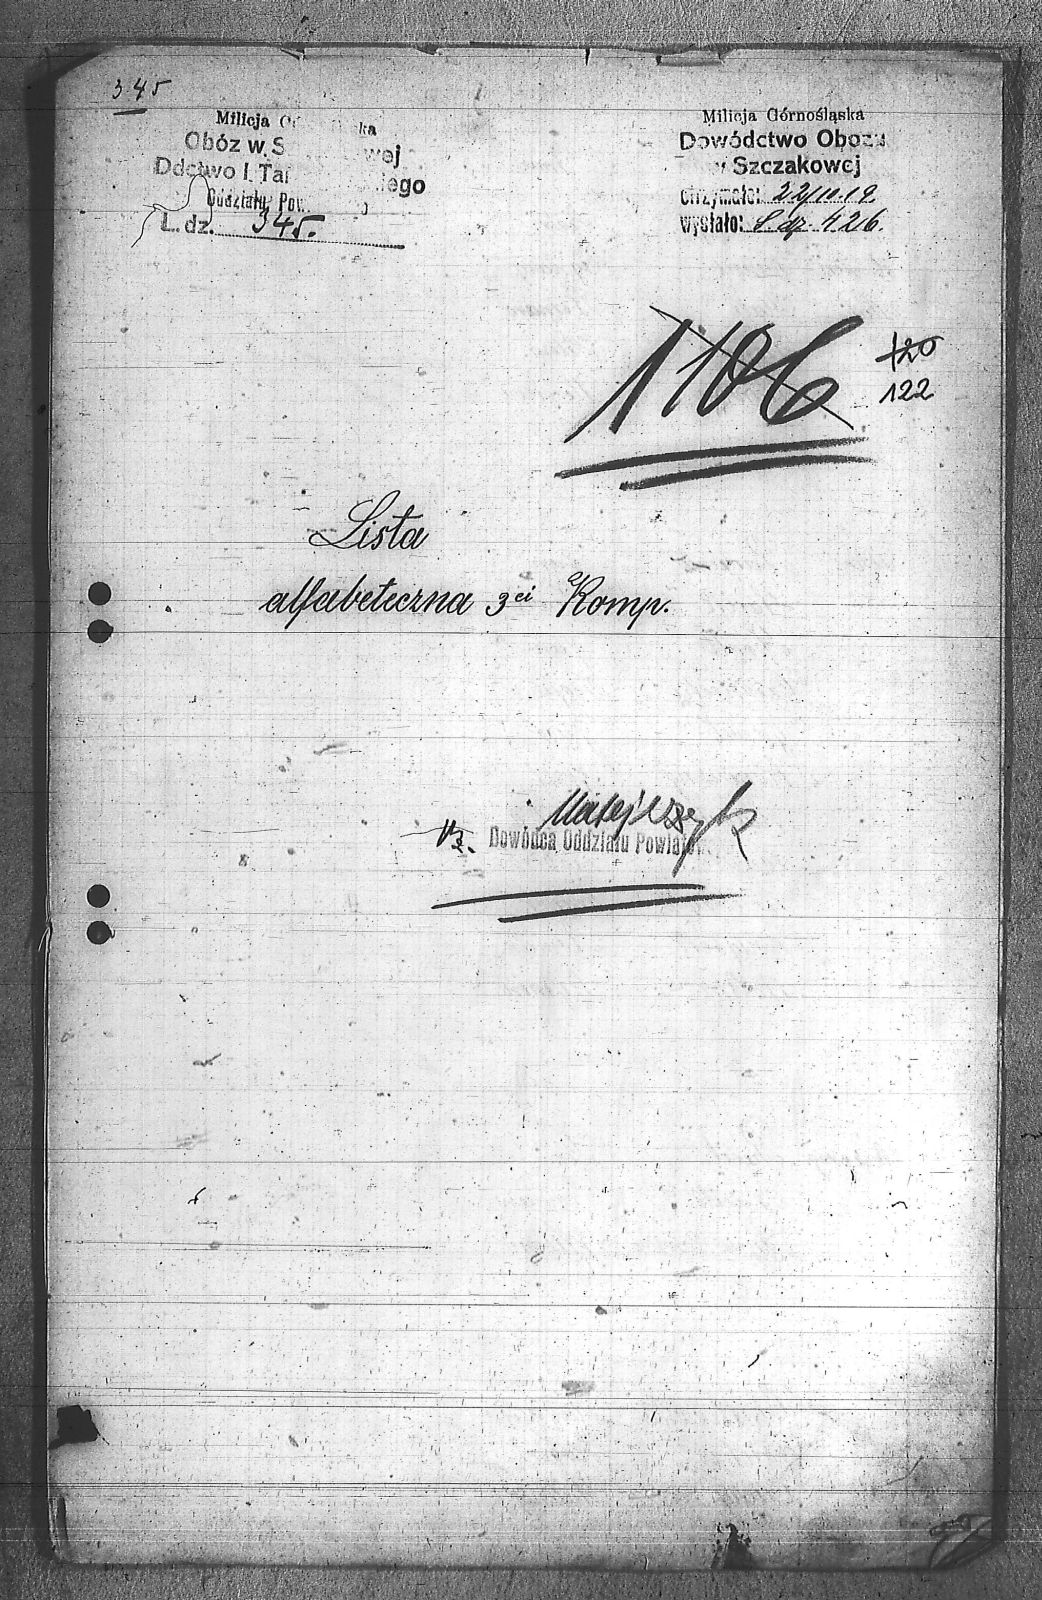 345
Milicja
Obóz w S wej
Ddctwo I. Tar iego
Oddziału Pow.
L. dz. 345.
Milicja Górnośląska
Dowództwo Obozu
w Szczakowej
otrzymało: 22/10.19.
wysłało: L. dz. 426.
1106
120
122
Lista
alfabeteczna 3ei Komp.
Matejczyk
Wz. Dowódca Oddziału Powiatow.